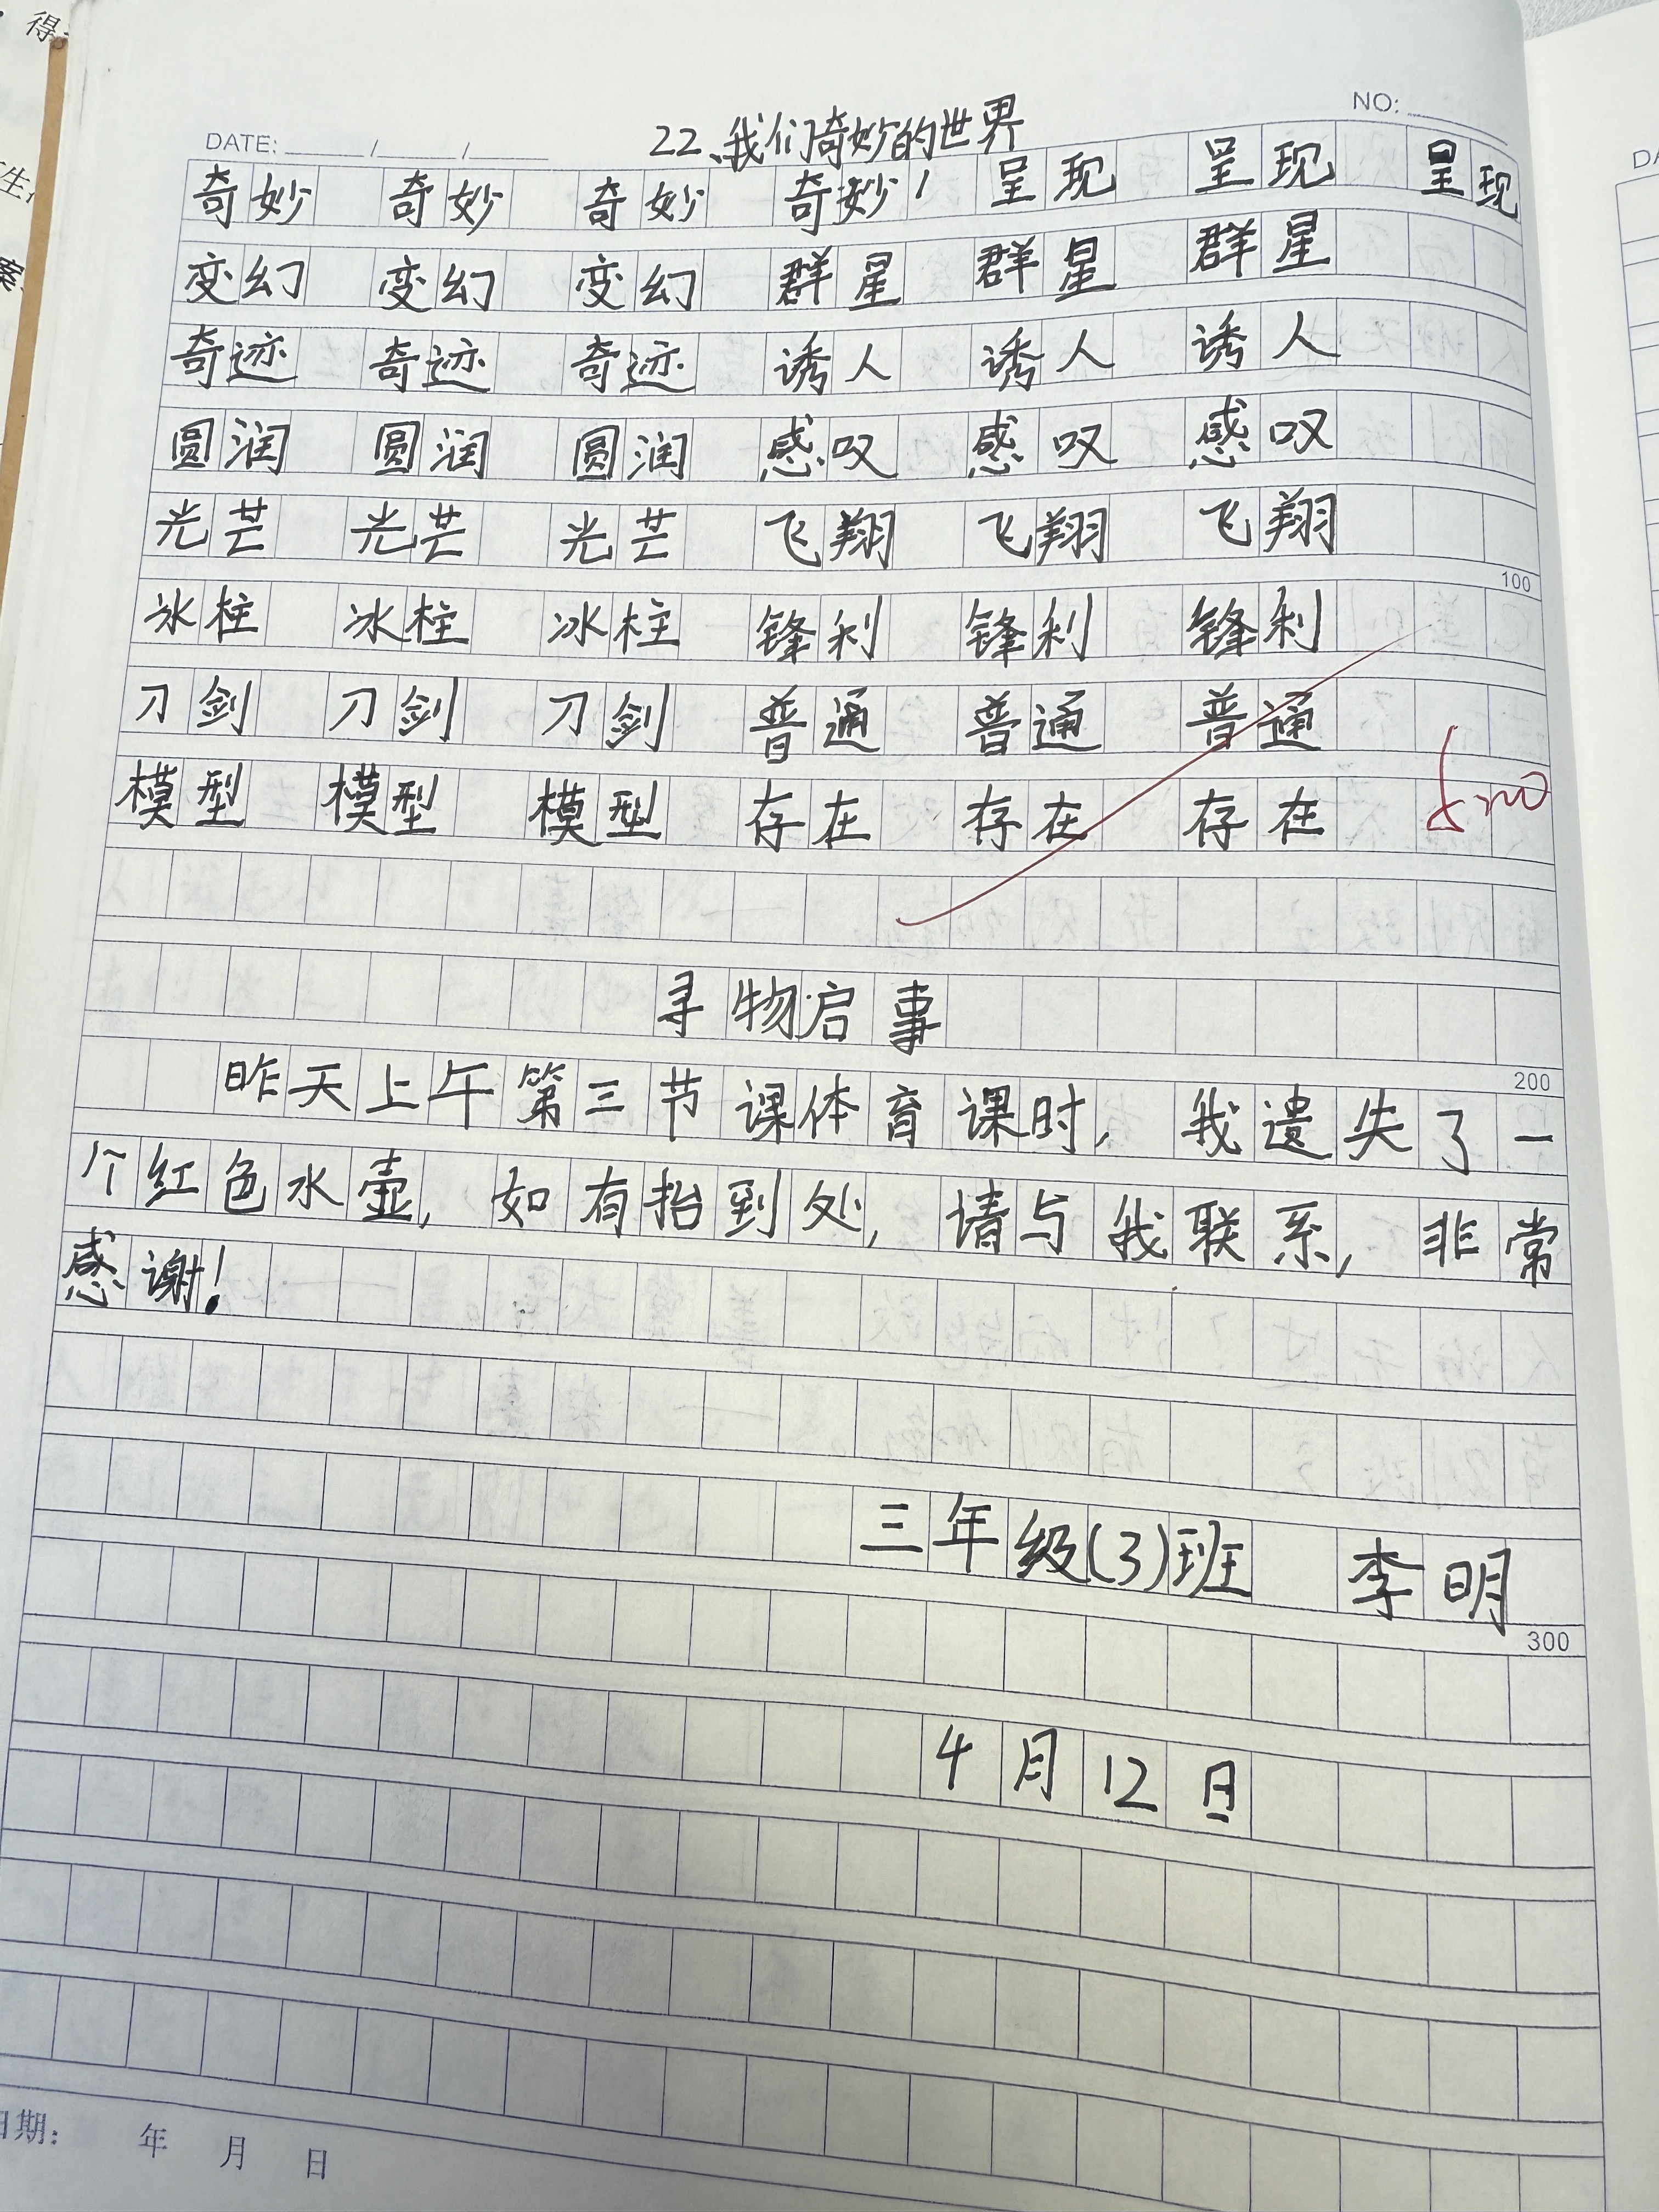 得
生
案
DATE: / / 22、我们奇妙的世界 NO:
奇妙 奇妙 奇妙 奇妙 呈现 呈现 呈现
变幻 变幻 变幻 群星 群星 群星
奇迹 奇迹 奇迹 诱人 诱人 诱人
圆润 圆润 圆润 感叹 感叹 感叹
光芒 光芒 光芒 飞翔 飞翔 飞翔
100
冰柱 冰柱 冰柱 锋利 锋利 锋利
刀剑 刀剑 刀剑 普通 普通 普通
模型 模型 模型 存在 存在 存在
寻物启事
200
昨天上午第三节课体育课时,我遗失了一
个红色水壶,如有抬到处,请与我联系,非常
感谢!
三年级(3)班 李明
300
4月12日
日期: 年 月 日